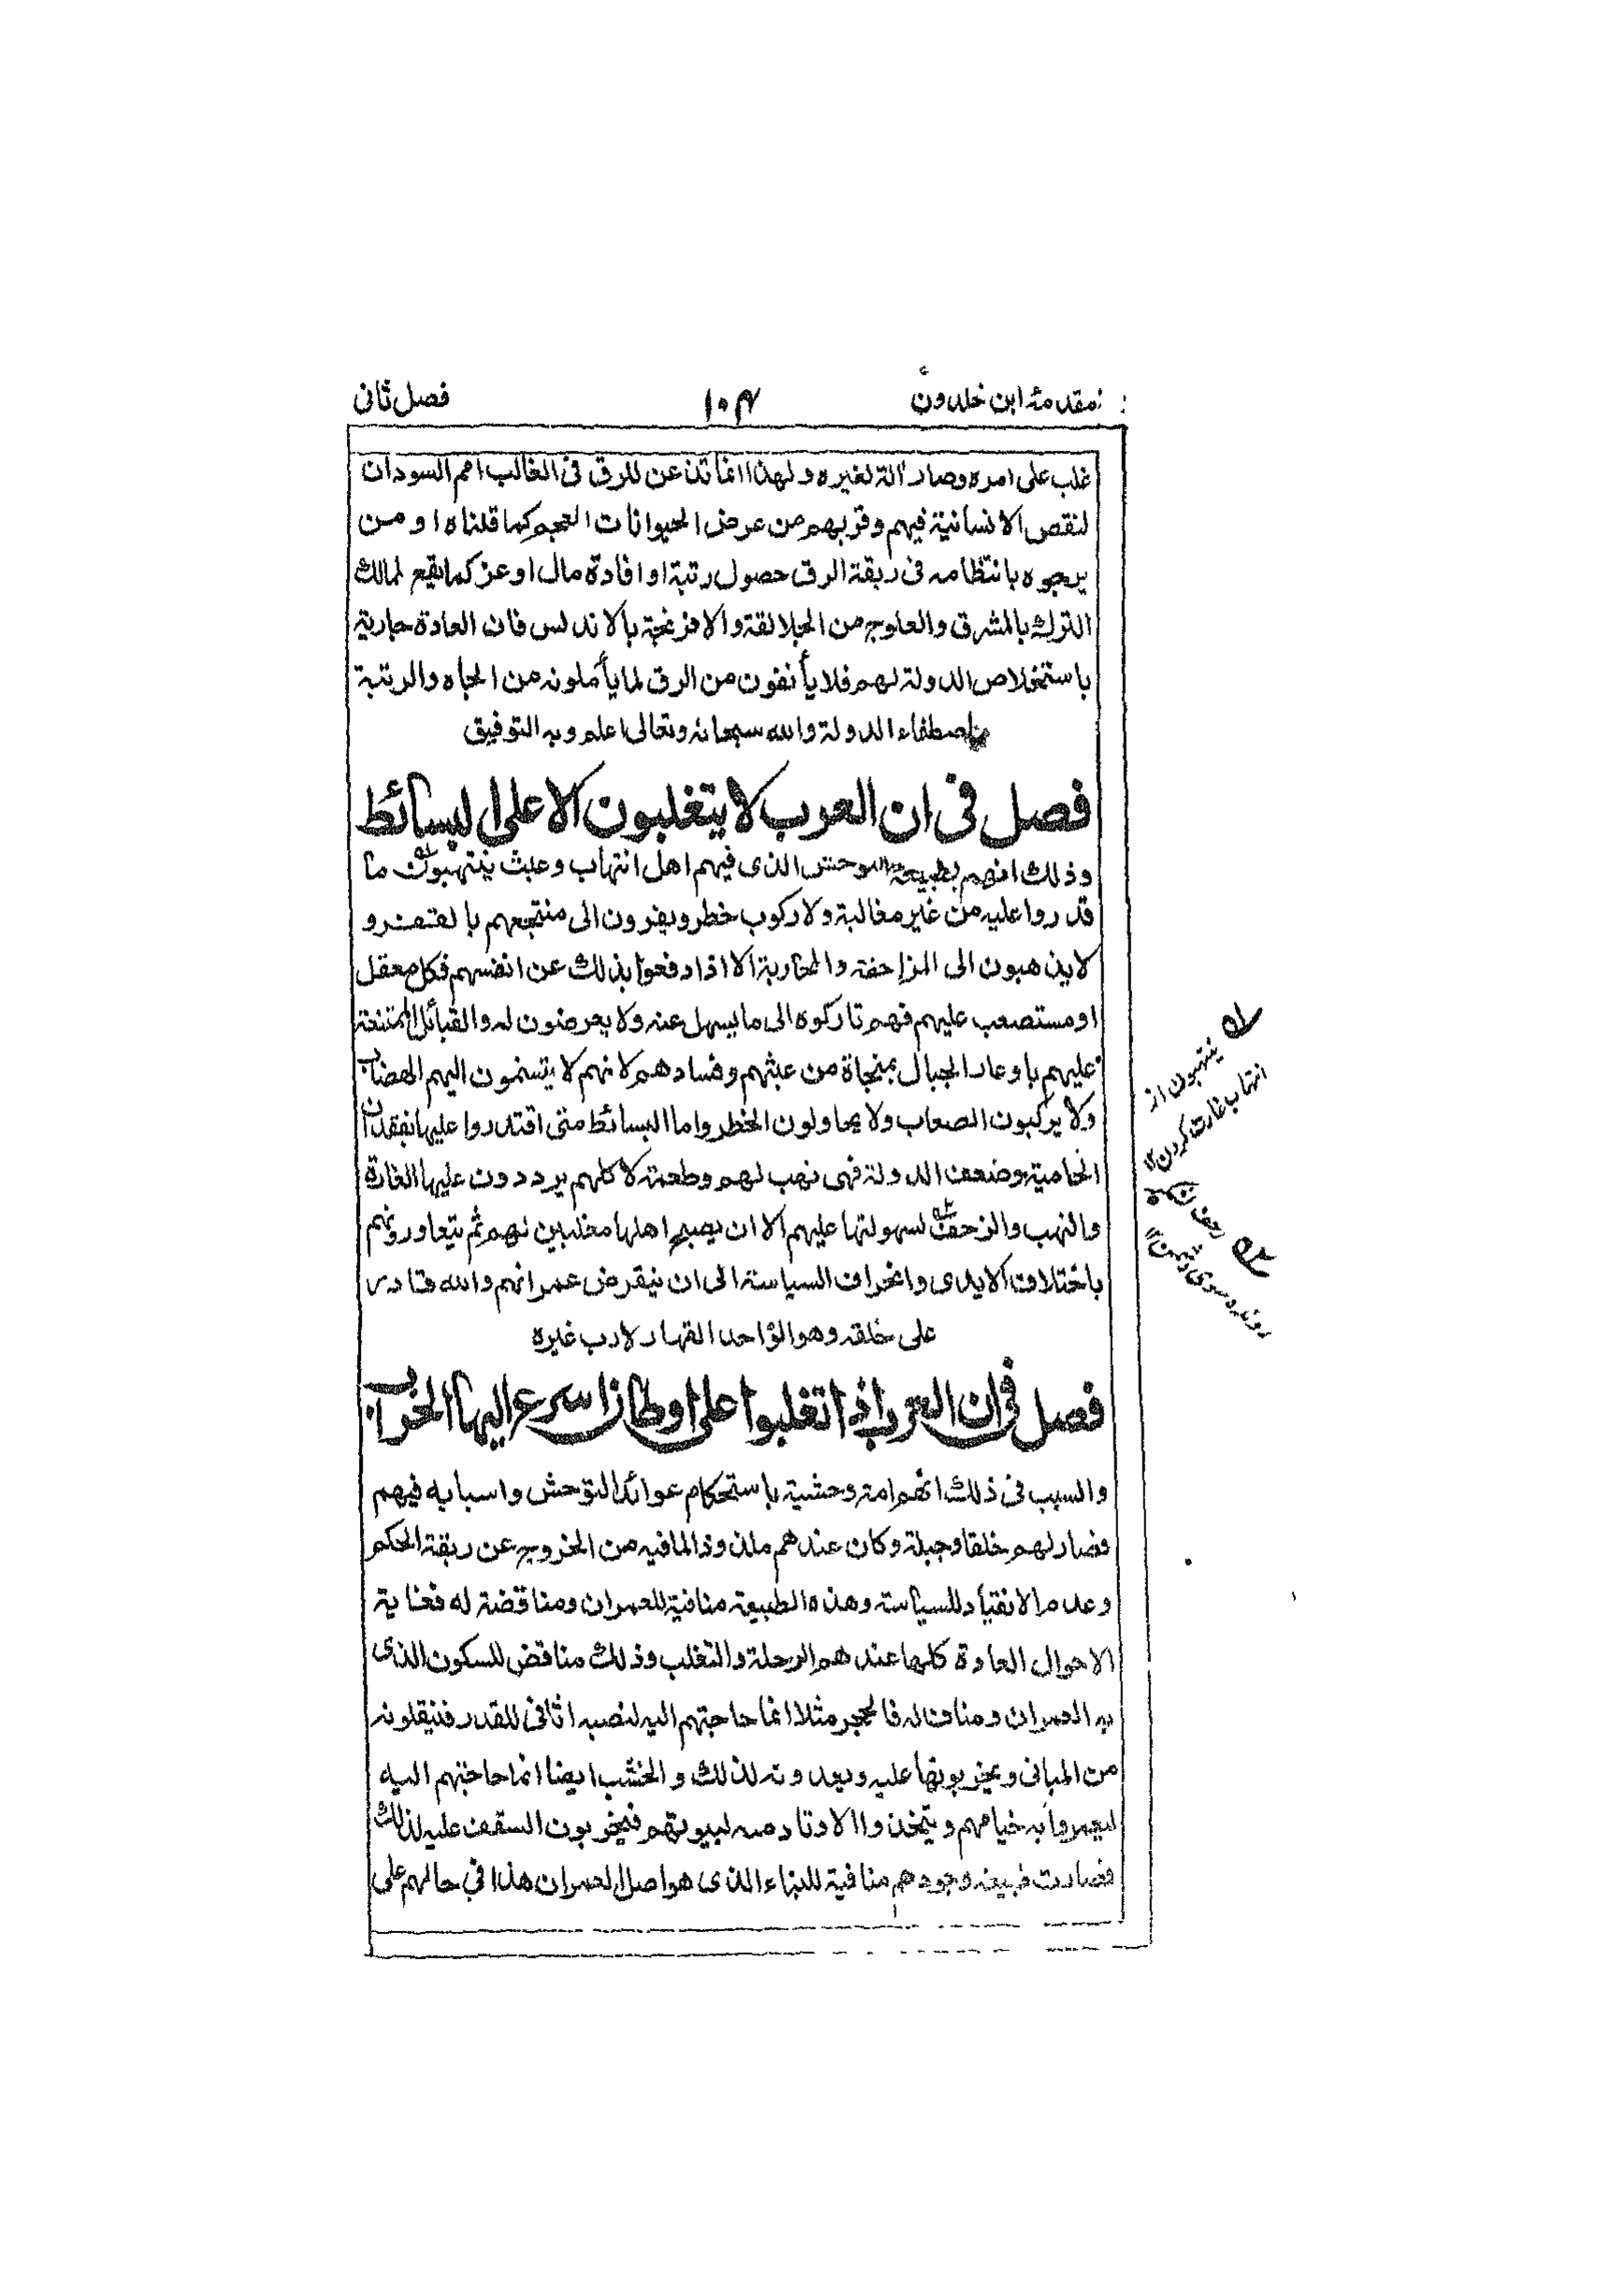 مقدمۂ ابن خلدون ۱۰۴ فصل ثانی
غلب على امره وصار آلة لغيره ولهذا انما تذعن للرق فى الغالب امم السودان
لنقص الانسانية فيهم وقربهم من عرض الحيوانات العجم كما قلناه او من
يرجوه بانتظامه فى ربقة الرق حصول رتبة او افادة مال او عز كما يقع لممالك
الترك بالمشرق والعلوج من الجلالقة والافرنجة بالاندلس فان العادة جارية
باستخلاص الدولة لهم فلا يأنفون من الرق لما يأملونه من الجاه والرتبة
باصطفاء الدولة والله سبحانه وتعالى اعلم وبه التوفيق
فصل فى ان العرب لا يتغلبون الا على البسائط
وذلك انهم بطبيعة التوحش الذى فيهم اهل انتهاب وعبث ينتهبون ما
قدروا عليه من غير مغالبة ولا ركوب خطر ويفرون الى منتجعهم بالقفر و
لا يذهبون الى المزاحفة والمحاربة الا اذا دفعوا بذلك عن انفسهم فكل معقل
او مستصعب عليهم فهم تاركوه الى ما يسهل عنه ولا يعرضون له والقبائل الممتنعة
عليهم باوعار الجبال بمنجاة من عبثهم وفسادهم لانهم لا يتسنمون اليهم الهضاب
ولا يركبون الصعاب ولا يحاولون الخطر واما البسائط متى اقتدروا عليها بفقدان
الحامية وضعف الدولة فهى نهب لهم وطعمة لاكلهم يرددون عليها الغارة
والنهب والزحف لسهولتها عليهم الا ان يصبح اهلها مغلبين لهم ثم يتعاورونهم
باختلاف الايدى وانحراف السياسة الى ان ينقرض عمرانهم والله قادر
على خلقه وهو الواحد القهار لا رب غيره
فصل فى ان العرب اذا تغلبوا على اوطان اسرع اليها الخراب
والسبب فى ذلك انهم امة وحشية باستحكام عوائد التوحش واسبابه فيهم
فصار لهم خلقا وجبلة وكان عندهم ملذوذا لما فيه من الخروج عن ربقة الحكم
وعدم الانقياد للسياسة وهذه الطبيعة منافية للعمران ومناقضة له فغاية
الاحوال العادة كلها عندهم الرحلة والتغلب وذلك مناقض للسكون الذى
به العمران ومناف له فالحجر مثلا انما حاجتهم اليه لنصبه اثافى للقدر فينقلونه
من المبانى ويخربونها عليه ويعدونه لذلك والخشب ايضا انما حاجتهم اليه
ليعمروا به خيامهم ويتخذوا الاوتاد منه لبيوتهم فيخربون السقف عليه لذلك
فصارت طبيعة وجودهم منافية للبناء الذى هو اصل العمران هذا فى حالهم على
ينتهبون از
انتهاب غارت كردن
زحف